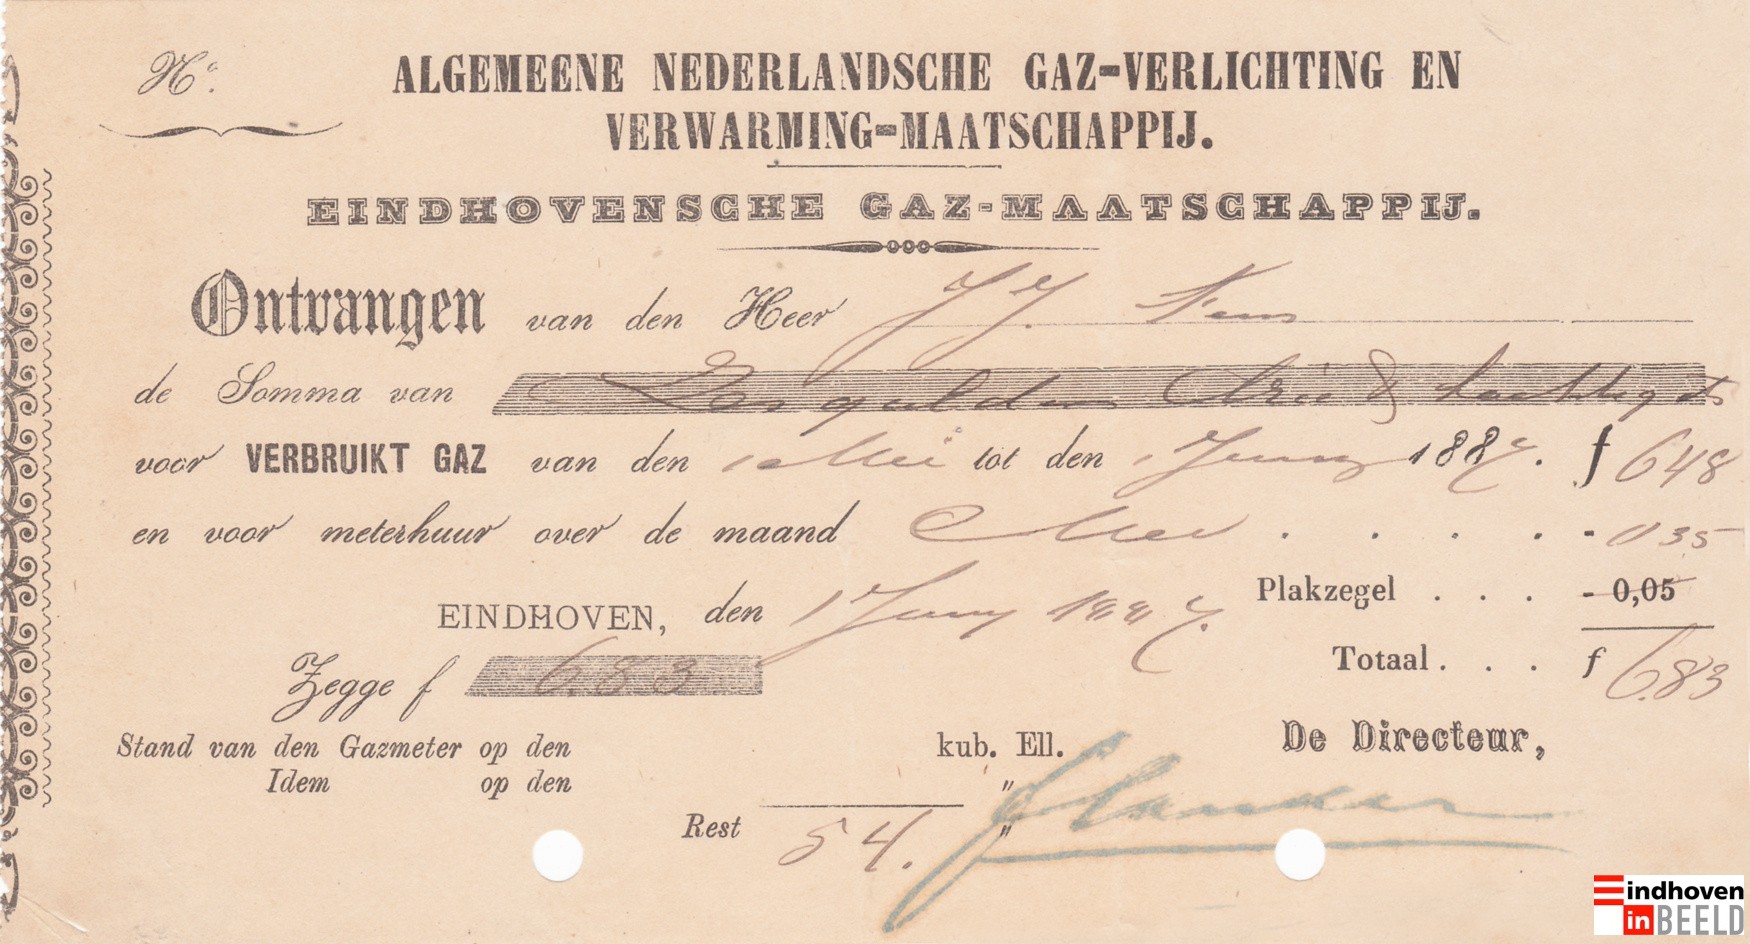 No.
ALGEMEENE NEDERLANDSCHE GAZ-VERLICHTING EN
VERWARMING-MAATSCHAPPIJ.
EINDHOVENSCHE GAZ-MAATSCHAPPIJ.
Ontvangen van den Heer J J.
de Somma van Zes gulden drie & tachtig cts
voor VERBRUIKT GAZ van den 1 Mei tot den 1 Juny 1887. f 6 48
en voor meterhuur over de maand Mei . . . . . - 0 35
Plakzegel . . . - 0,05
EINDHOVEN, den 1 Juny 1887.
Totaal . . . f 6.83
Zegge f 6.83
De Directeur,
Stand van den Gazmeter op den kub. Ell.
Idem op den "
Rest 54. "
Eindhoven
in BEELD